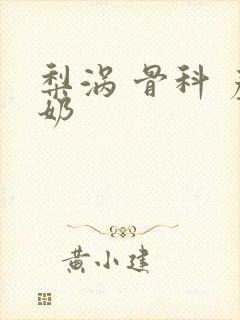 梨涡 骨科 产
奶
黄小建